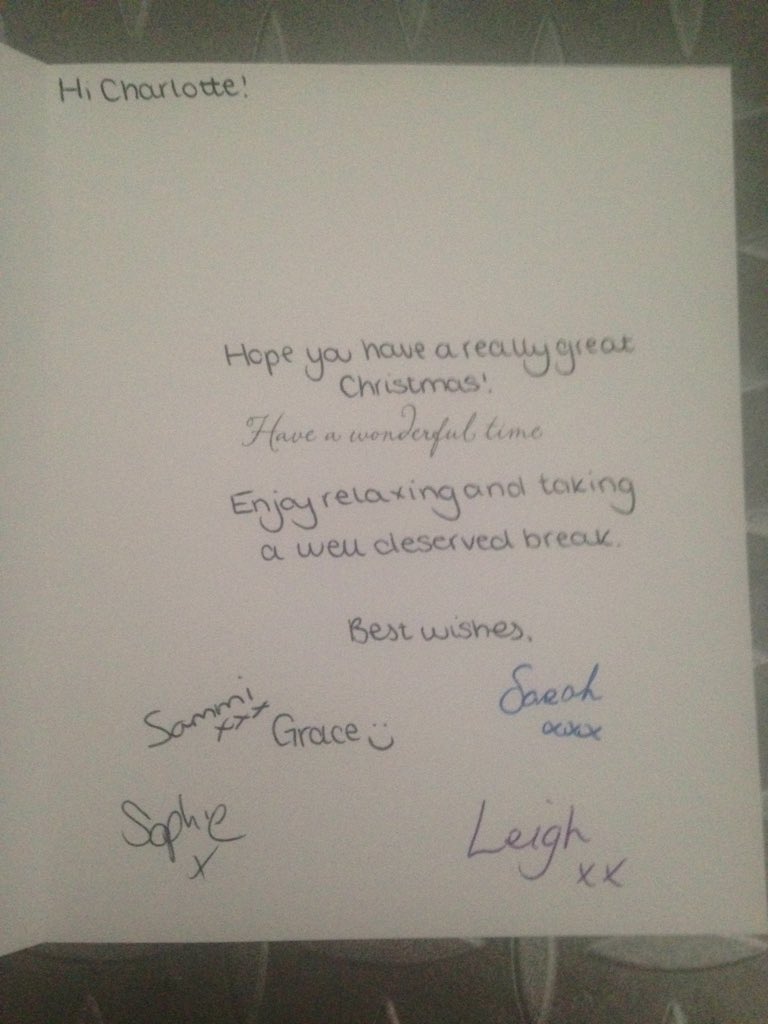 Hi Charlotte!
Hope you have a really great
Christmas!
Have a wonderful time
Enjoy relaxing and taking
a well deserved break.
Best wishes,
Sammi
xxx
Grace :)
Sarah
xxxx
Sophie
x
Leigh
xx